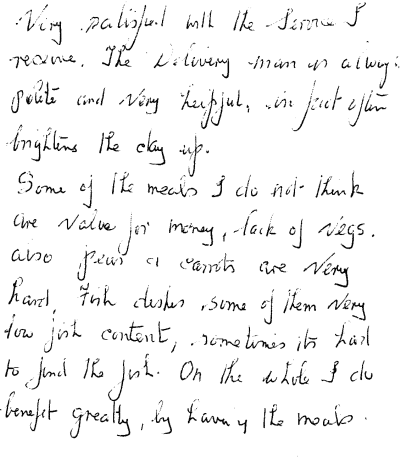 Very satisfied with the Service I
receive. The Delivery man is always
polite and very helpful, in fact often
brightens the day up.
Some of the meals I do not think
are value for money, lack of vegs.
also peas & carrots are very
hard, Fish dishes, some of them very
low fish content, sometimes its hard
to find the fish. On the whole I do
benefit greatly, by having the meals.